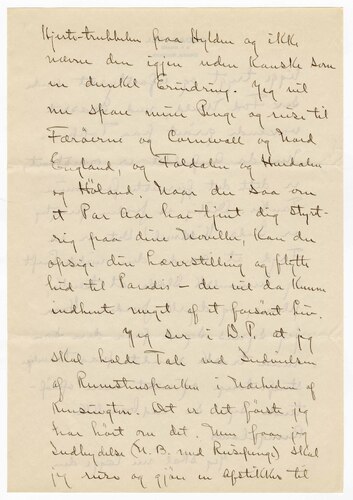 Hjerte-trubbelen paa Hylden og ikke
nævne den igjen uden kanske som
en dunkel Erindring. Jeg vil
nu spare mine Penge og reise til
Færøerne og Cornwall og Nord
England, og Foldalen og Hurdalen
og Höland. Naar du saa om
et Par Aar har tjent dig styrt-
rig paa dine Noveller, kan du
opsige din Lærerstilling og flytte
hid til Paradis – du vil da kunne
indhente meget af et forsömt Liv.
Jeg ser i D.P. at jeg
skal holde Tale ved Indvielsen
af Runestensparken i Nærheden af
Kensington. Det er det förste jeg
har hört om det. Men faar jeg
Indbydelse (N.B. med Reisepenge) skal
jeg reise og gjöre en Afstikker til